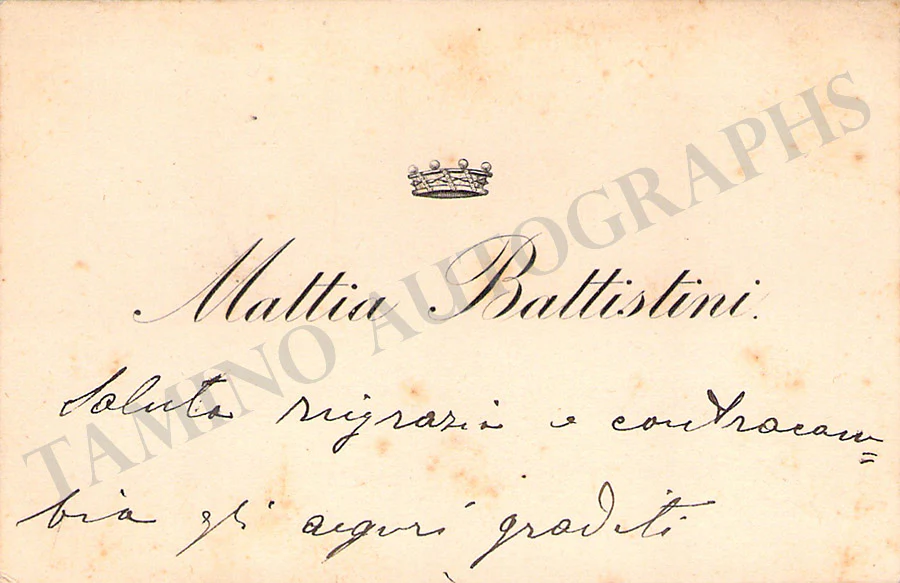 Mattia Battistini.
Saluta ringrazia e contracam=
bia gli auguri graditi
TAMINO AUTOGRAPHS